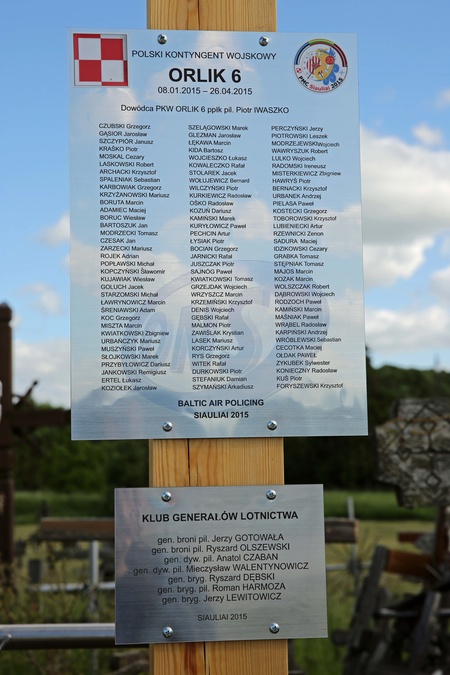 POLSKI KONTYNGENT WOJSKOWY
ORLIK 6
08.01.2015 – 26.04.2015
Dowódca PKW ORLIK 6 ppłk pil. Piotr IWASZKO
PMC
Siauliai 2015
CZUBSKI Grzegorz
GĄSIOR Jarosław
SZCZYPIOR Janusz
KRAŚKO Piotr
MOSKAL Cezary
LASKOWSKI Robert
ARCHACKI Krzysztof
SPALENIAK Sebastian
KARBOWIAK Grzegorz
KRZYŻANOWSKI Mariusz
BORUTA Marcin
ADAMIEC Maciej
BORUC Wiesław
BARTOSZUK Jan
MODRZECKI Tomasz
CZESAK Jan
ZARZECKI Mariusz
ROJEK Adrian
POPŁAWSKI Michał
KOPCZYŃSKI Sławomir
KUJAWIAK Wiesław
GOLUCH Jacek
STARZOMSKI Michał
ŁAWRYNOWICZ Marcin
ŚRENIAWSKI Adam
KOC Grzegorz
MISZTA Marcin
KWIATKOWSKI Zbigniew
URBAŃCZYK Mariusz
MUSZYŃSKI Paweł
SŁOJKOWSKI Marek
PRZYBYŁOWICZ Dariusz
JANKOWSKI Remigiusz
ERTEL Łukasz
KOZIOŁEK Jarosław
SZELĄGOWSKI Marek
GLEZMAN Jarosław
ŁĘKAWA Marcin
KIDA Bartosz
WOJCIESZKO Łukasz
KOWALECZKO Rafał
STOLAREK Jacek
WOŁUJEWICZ Bernard
WILCZYŃSKI Piotr
KURKIEWICZ Radosław
OŚKO Radosław
KOZUŃ Dariusz
KAMIŃSKI Marek
KURYŁOWICZ Paweł
PECHCIN Artur
ŁYSIAK Piotr
BOCIAN Grzegorz
JARNICKI Rafał
JUSZCZAK Piotr
SAJNÓG Paweł
KWIATKOWSKI Tomasz
GRZEJDAK Wojciech
WRZYSZCZ Marcin
KRZEMIŃSKI Krzysztof
DENIS Wojciech
GĘBSKI Rafał
MALMON Piotr
ZAWIŚLAK Krystian
LASEK Mariusz
KORCZYŃSKI Artur
RYS Grzegorz
WITEK Rafał
DURKOWSKI Piotr
STEFANIUK Damian
SZYMAŃSKI Arkadiusz
PERCZYŃSKI Jerzy
PIOTROWSKI Leszek
MODRZEJEWSKI Wojciech
WAWRYSZUK Robert
LULKO Wojciech
RADOMSKI Ireneusz
MISTERKIEWICZ Zbigniew
HAWRYŚ Piotr
BERNACKI Krzysztof
URBANEK Andrzej
PIELASA Paweł
KOSTECKI Grzegorz
TOBOROWSKI Krzysztof
LUBIENIECKI Artur
RZEWNICKI Zenon
SADURA Maciej
IDZIKOWSKI Cezary
GRABKA Tomasz
STĘPNIAK Tomasz
MAJOS Marcin
KOZAK Marcin
WOLSZCZAK Robert
DĄBROWSKI Wojciech
RODZOCH Paweł
KAMIŃSKI Marcin
MAŚNIAK Paweł
WRĄBEL Radosław
KARPIŃSKI Andrzej
WRÓBLEWSKI Sebastian
CECOTKA Maciej
OŁDAK PAWEŁ
ZYKUBEK Sylwester
KONIECZNY Radosław
KUŚ Piotr
FORYSZEWSKI Krzysztof
BALTIC AIR POLICING
SIAULIAI 2015
KLUB GENERAŁÓW LOTNICTWA
gen. broni pil. Jerzy GOTOWAŁA
gen. broni pil. Ryszard OLSZEWSKI
gen. dyw. pil. Anatol CZABAN
gen. dyw. pil. Mieczysław WALENTYNOWICZ
gen. bryg. Ryszard DĘBSKI
gen. bryg. pil. Roman HARMOZA
gen. bryg. Jerzy LEWITOWICZ
SIAULIAI 2015